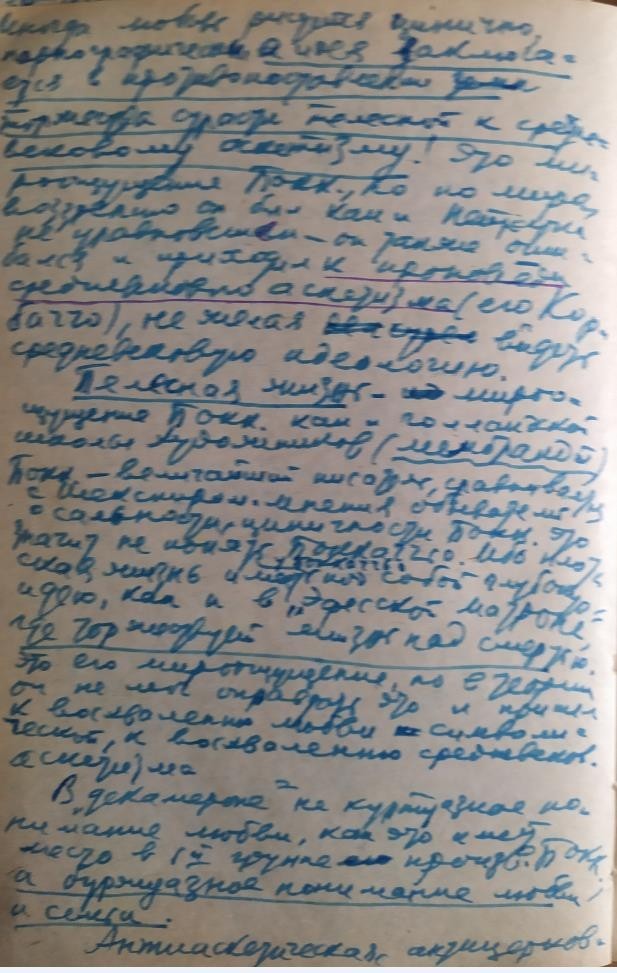 Иногда любовь рисуется цинично,
порнографически, а идея заключа-
ется в противопоставлении
торжества страсти телесной к средне-
вековому аскетизму! Это ми-
роощущение Бокк., но по миро-
воззрению он был как и Петрарка
не уравновешен — он также
и приходил к проповеди
средневекового аскетизма (его Кор-
баччо), не желая видеть
средневековую идеологию.
Телесная жизнь — миро-
ощущение Бокк. как и голландской
школы художников (
Бокк — величайший писатель, сравнивается
с Шекспиром. Мнения обывателей
о сальности, циничности Бокк. это
значит не понять Боккаччо. Ибо плот-
ская жизнь имеет под собой глубокую
идею, как и в "Эфесской матроне",
где торжествует жизнь над смертью.
Это его мироощущение, но в теории
он не мог оправдать это и пришел
к восхвалению любви символи-
ческой, к восхвалению средневеков.
аскетизма
В "Декамероне" не куртуазное по-
нимание любви, как это имеет
место в 1й группе произв. Бокк.
а буржуазное понимание любви
и секса.
Антиаскетическая, антицерков-